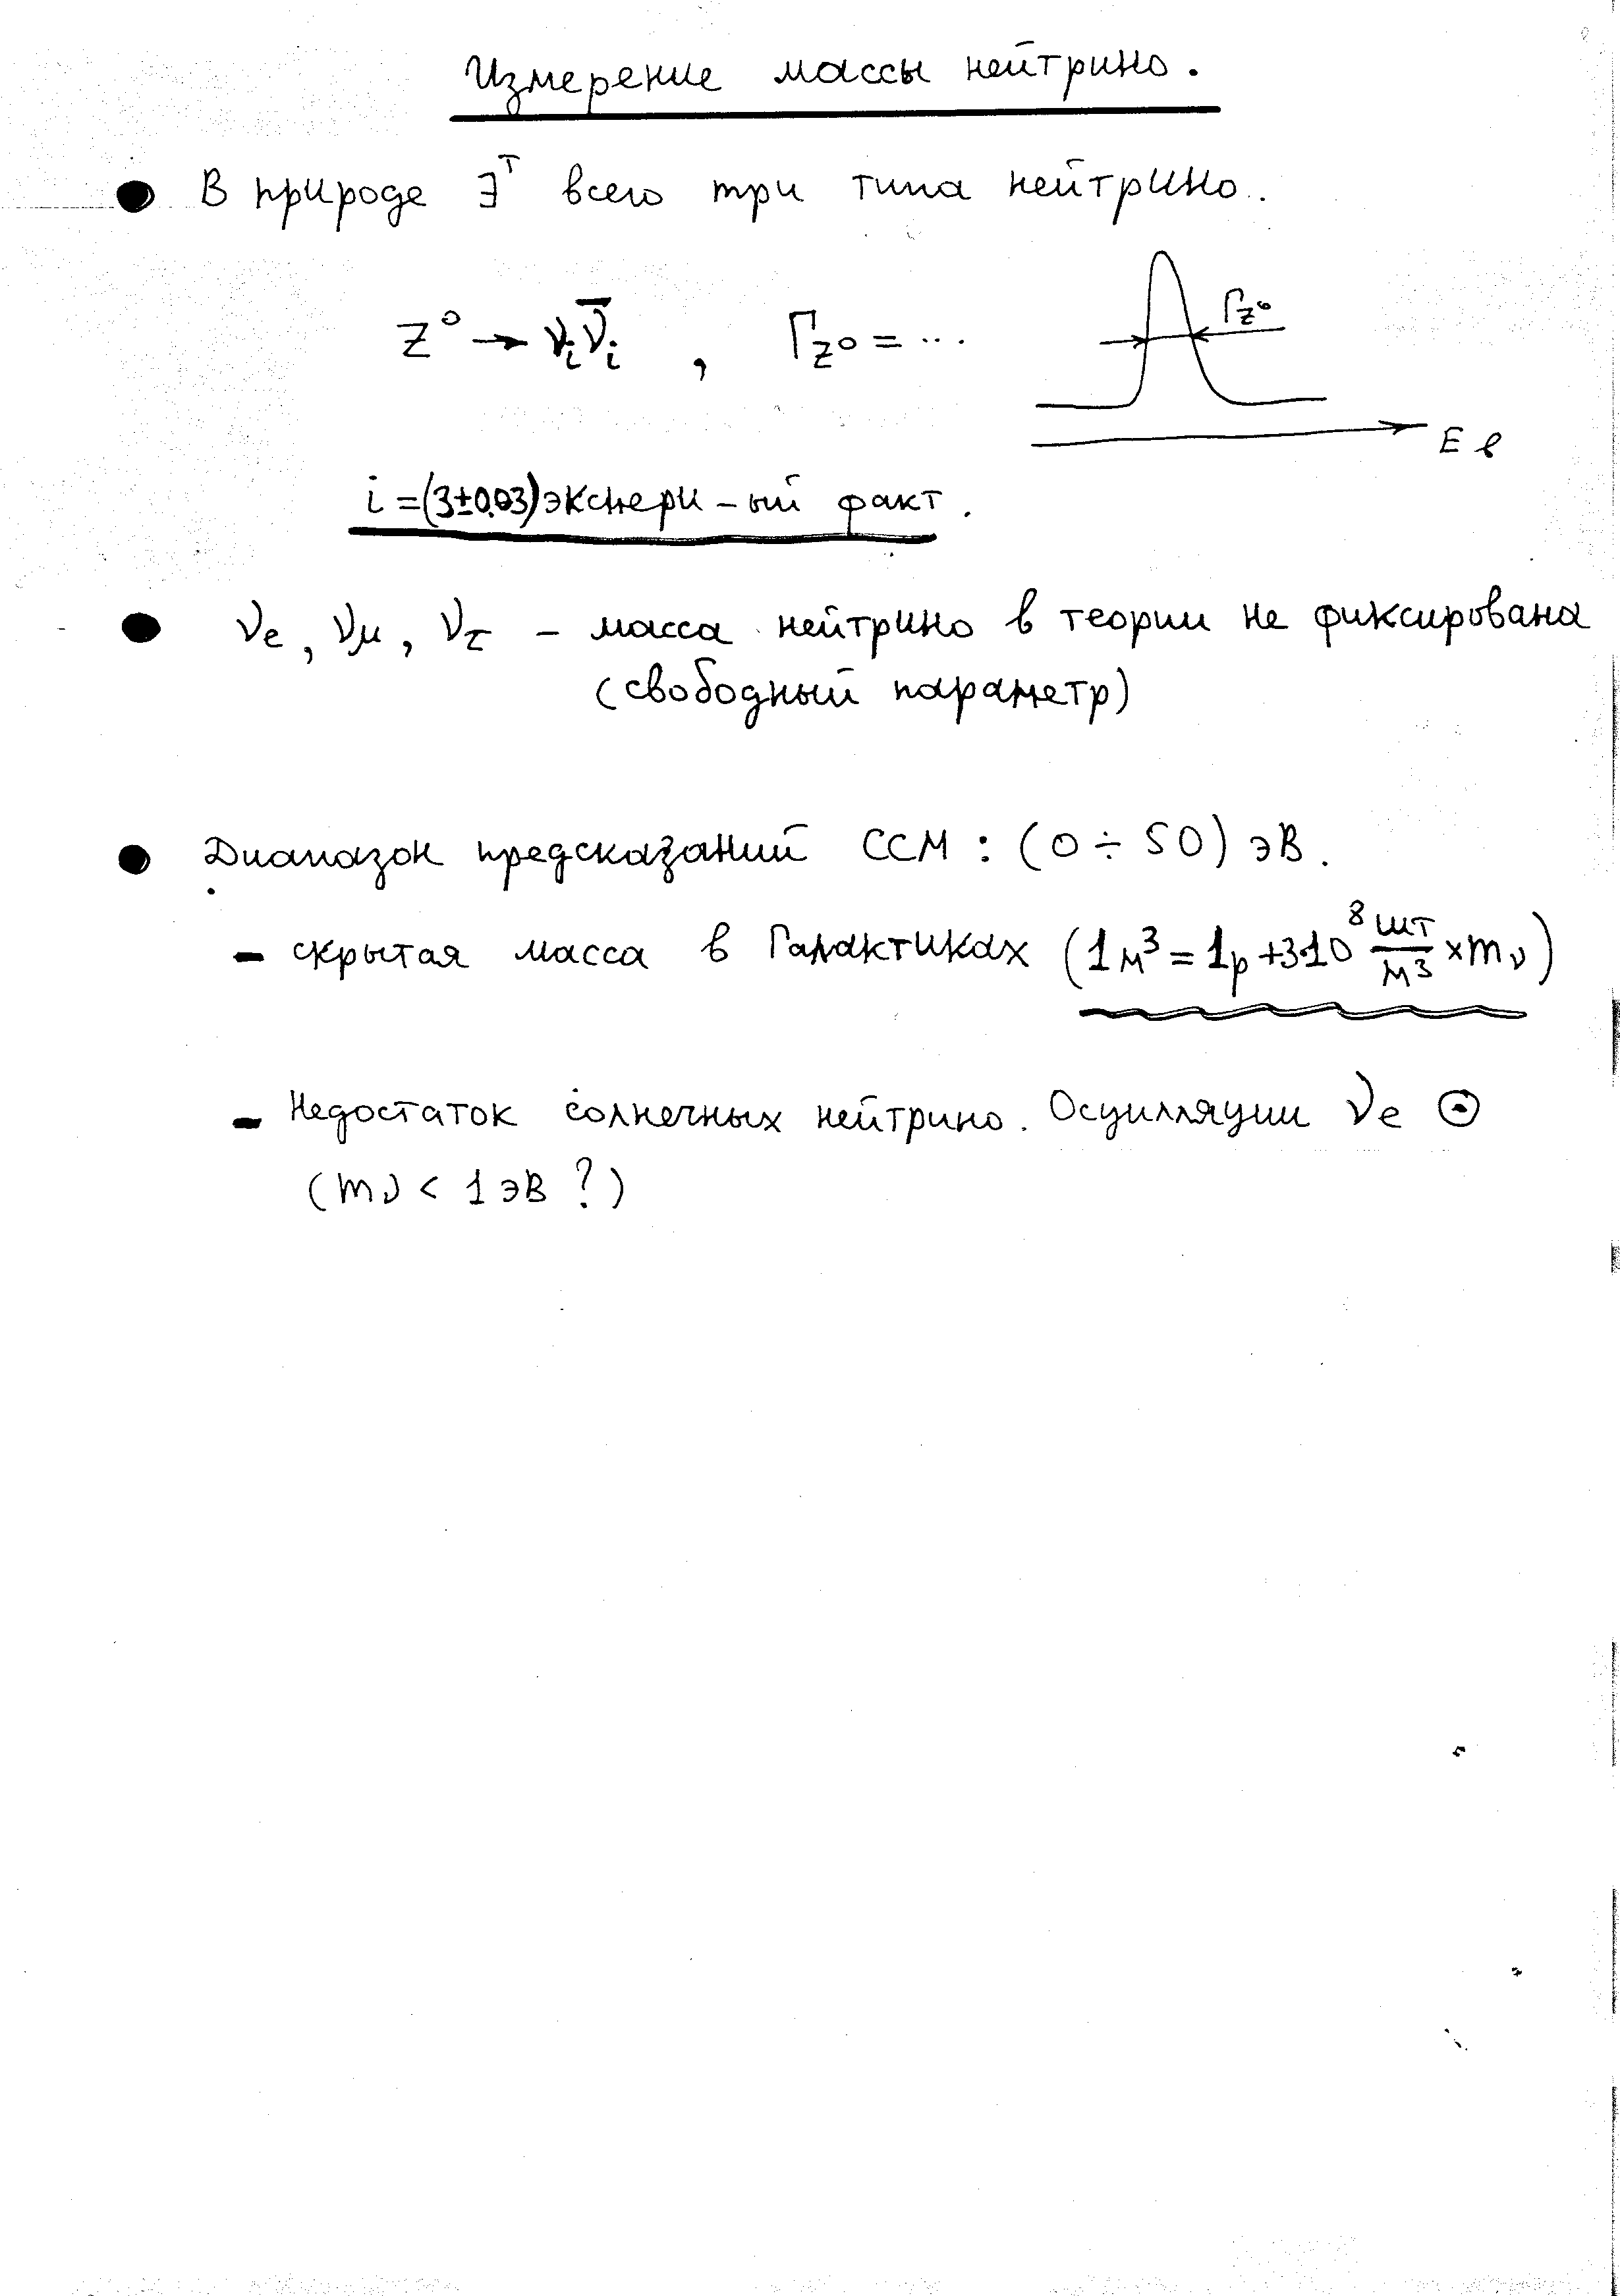 Измерение массы нейтрино.
● В природе ∃ᵀ всего три типа нейтрино.
Z⁰ → νᵢν̄ᵢ , Γ_Z⁰ = ...
Γ_Z⁰
E
i = (3±0,03) экспери-ый факт.
● νe, νμ, ντ – масса нейтрино в теории не фиксирована
(свободный параметр)
● Диапазон предсказаний ССМ : (0 ÷ 50) эВ.
– скрытая масса в Галактиках (1м³ = 1p + 3·10⁸ шт/м³ × mν)
– Недостаток солнечных нейтрино. Осцилляции νe ⊙
(mν < 1 эВ ?)